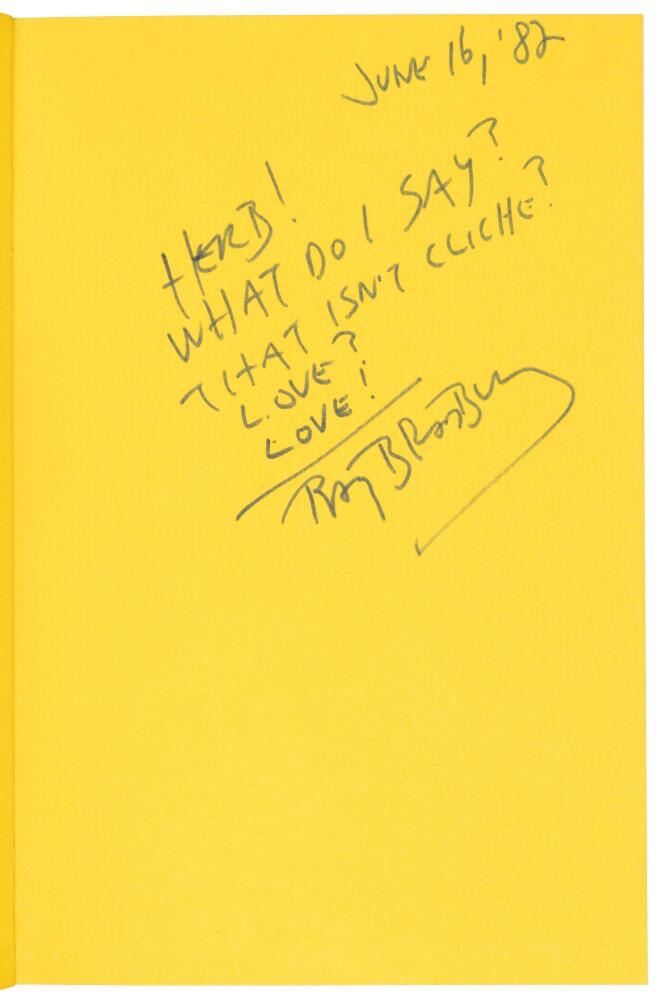 JUNE 16, '82
HERB!
WHAT DO I SAY?
THAT ISN'T CLICHE?
LOVE?
LOVE!
Ray Bradbury